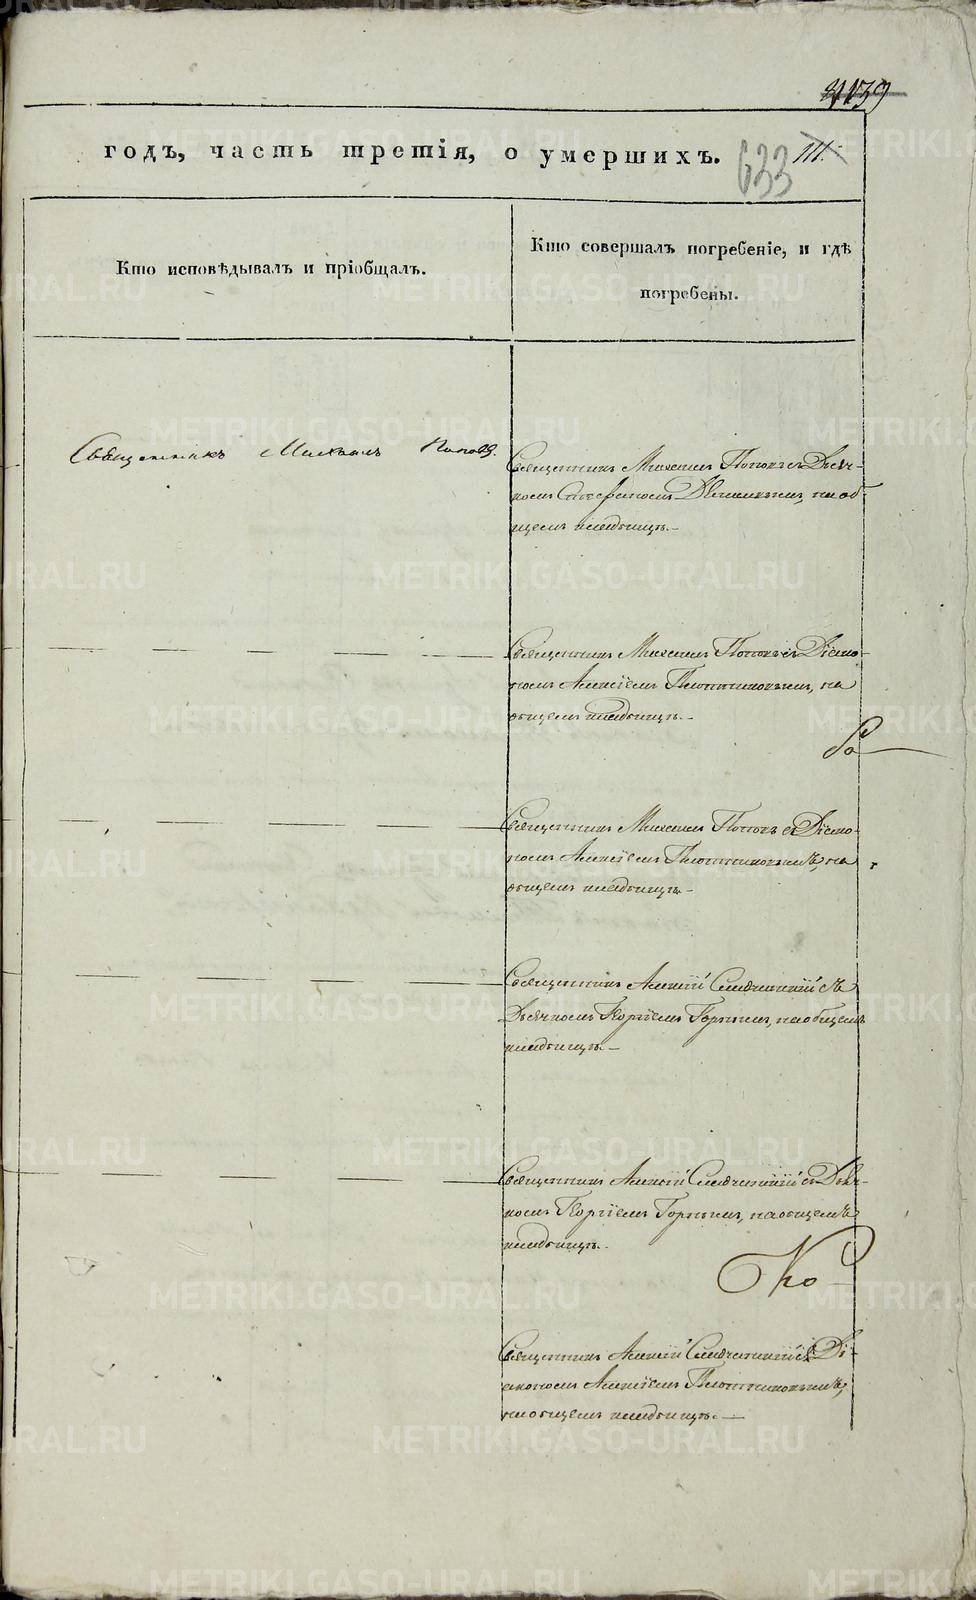 годъ, часть третія, о умершихъ.
633
111.
Кто исповѣдывалъ и пріобщалъ.
Кто совершалъ погребеніе, и гдѣ
погребены.
Священникъ Михаилъ Поповъ.
Священникъ Михаилъ Поповъ съ Дьяч-
комъ Стефаномъ на об-
щемъ кладбищѣ.—
Священникъ Михаилъ Поповъ съ Діако-
номъ Алексіемъ Плотниковымъ, на
общемъ кладбищѣ.—
Священникъ Михаилъ Поповъ съ Діако-
номъ Алексіемъ Плотниковымъ, на
общемъ кладбищѣ.—
Священникъ Алексій съ
Дьячкомъ Георгіемъ Горнымъ, на общемъ
кладбищѣ.—
Священникъ Алексій съ Дьяч-
комъ Георгіемъ Горнымъ, на общемъ
кладбищѣ.
Ко
Священникъ Алексій съ Ді-
акономъ Алексіемъ Плотниковымъ,
на общемъ кладбищѣ.—
METRIKI.GASO-URAL.RU